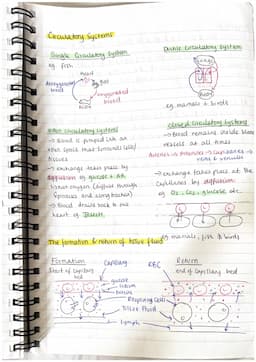 Circulatory Systems
Single Circulatory System
eg. fish
heart
deoxygenated
blood
oxygenated
blood
Body
Double Circulatory System
Lungs
Body
eg. mammals + birds
Open Circulatory Systems
→ Blood is pumped into an
open space that surrounds cells/
tissues
→ exchange takes place by
diffusion
→ Blood drains back to our
heart eg. Insects
Closed Circulatory Systems
→ Blood remains inside blood
vessels at all times
Arteries → Arterioles → Capillaries →
veins & venules
→ exchange takes place at the
Capillaries by diffusion.
eg. O₂, CO₂, glucose etc.
eg. mammals, fish & birds
The formation & return of tissue fluid
Formation
Start of Capillary
bed
Capillary
RBC
Return
end of Capillary bed
glucose
Respiring Cells
Tissue Fluid
Lymph